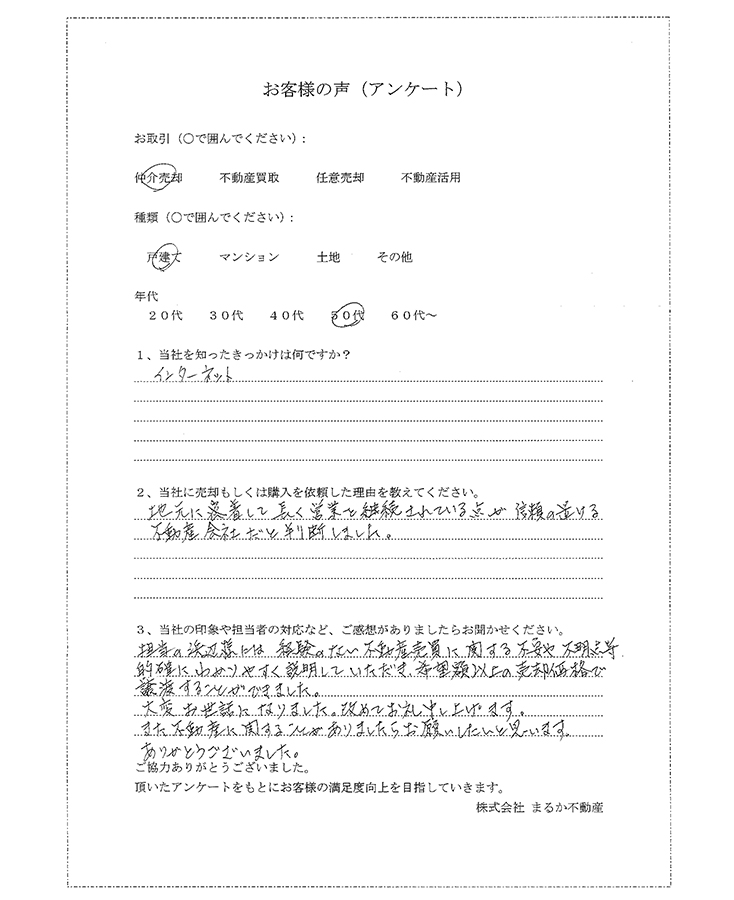 お客様の声（アンケート）
お取引（○で囲んでください）：
仲介売却 不動産買取 任意売却 不動産活用
種類（○で囲んでください）：
戸建て マンション 土地 その他
年代
２０代 ３０代 ４０代 ５０代 ６０代～
１、当社を知ったきっかけは何ですか？
インターネット
２、当社に売却もしくは購入を依頼した理由を教えてください。
地元に密着して長く営業を継続されている点が信頼の置ける
不動産会社だと判断しました。
３、当社の印象や担当者の対応など、ご感想がありましたらお聞かせください。
担当の浜辺様には経験のない不動産売買に関する不安や不明点等
的確にわかりやすく説明していただき、希望額以上の売却価格で
譲渡することができました。
大変お世話になりました。改めてお礼申し上げます。
また不動産に関することがありましたらお願いしたいと思います。
ありがとうございました。
ご協力ありがとうございました。
頂いたアンケートをもとにお客様の満足度向上を目指していきます。
株式会社 まるか不動産